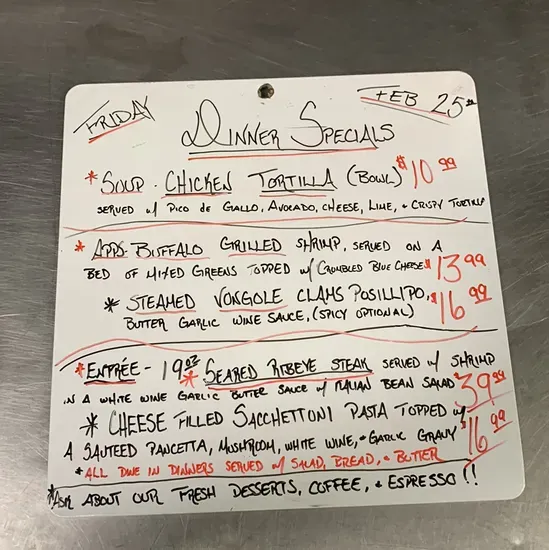 FRIDAY
FEB 25th
DINNER SPECIALS
* SOUP - CHICKEN TORTILLA (BOWL) $10.99
SERVED w/ PICO DE GALLO, AVOCADO, CHEESE, LIME, + CRISPY TORTILLA
* APPS - BUFFALO GRILLED SHRIMP, SERVED ON A
BED OF MIXED GREENS TOPPED w/ CRUMBLED BLUE CHEESE $13.99
* STEAMED VONGOLE CLAMS POSILLIPO, $16.99
BUTTER GARLIC WINE SAUCE, (SPICY OPTIONAL)
* ENTRÉE - 19oz * SEARED RIBEYE STEAK SERVED w/ SHRIMP
IN A WHITE WINE GARLIC BUTTER SAUCE w/ ITALIAN BEAN SALAD $39.99
* CHEESE FILLED SACCHETTONI PASTA TOPPED w/
A SAUTEED PANCETTA, MUSHROOM, WHITE WINE, + GARLIC GRAVY $16.99
* ALL DINE IN DINNERS SERVED w/ SALAD, BREAD, + BUTTER
*ASK ABOUT OUR FRESH DESSERTS, COFFEE, + ESPRESSO!!